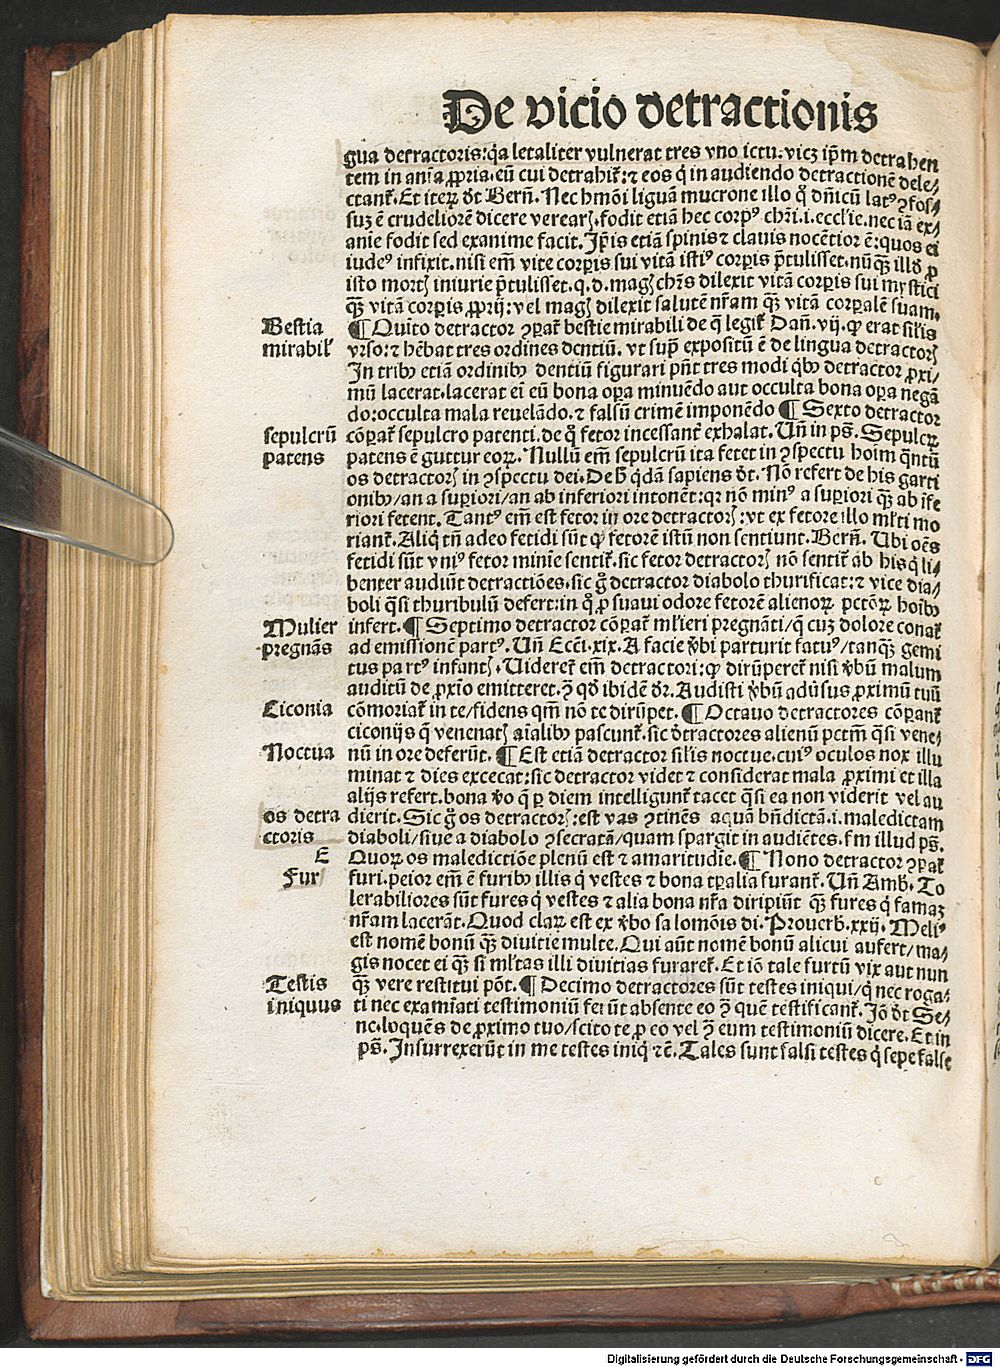 De vicio detractionis
gua detractoris: q̇a letaliter vulnerat tres vno ictu. vicꝫ ip̄m detrahen
tem in aīa ꝓpria. eū cui detrahit̄: ⁊ eos q̇ in audiendo detractionē dele⸗
ctant̄. Et iteꝝ d̄t Bern̄. Nec hm̄oi liguā mucrone illo q̊ dn̄icū latꝰ ꝯfos⸗
suꝫ ē crudeliorē dicere verearꝭ. fodit etiā hec corpꝰ chr̄i .i. eccl'ie. nec iā ex⸗
anie fodit sed exanime facit. Ip̄is etiā spinis ⁊ clauis nocētior ē: quos ei
iudeꝰ infixit. nisi em̄ vite corꝑis sui vitā istiꝰ corꝑis p̄tulisset. nūq̄ꝫ illd̓ ꝓ
isto mortꝭ iniurie p̄tulisset. q. d. magꝭ chr̄s dilexit vitā corꝑis sui mystici
q̄ꝫ vitā corꝑis ꝓprij: vel magꝭ dilexit salutē nr̄am q̄ꝫ vitā corꝑalē suam.
Bestia
mirabil'
¶ Quīto detractor ꝯꝑat̄ bestie mirabili de q̄ legit̄ Dan̄. vij. ꝙ erat sil'is
vrso: ⁊ hēbat tres ordines dentiū. vt sup̄ expositū ē de lingua detractorꝭ
In tribꝰ etiā ordinibꝰ dentiū figurari pn̄t tres modi q̇bꝰ detractor ꝓxi⸗
mū lacerat. lacerat ei eū bona oꝑa minuēdo aut occulta bona oꝑa negā
do: occulta mala reuelādo. ⁊ falsū crimē imponēdo ¶ Sexto detractor
sepulcrū
patens
cōꝑat̄ sepulcro patenti. de q̊ fetor incessant̄ exhalat. Un̄ in ps̄. Sepulcꝝ
patens ē guttur eoꝝ. Nullū em̄ sepulcrū ita fetet in ꝯspectu hoīm q̄ntū
os detractorꝭ in ꝯspectu dei. De h̄ q̇dā sapiens d̄t. Nō refert de his garri
onibꝰ/an a suꝑiori/an ab inferiori intonēt: qꝛ nō minꝰ a suꝑiori q̄ꝫ ab īfe
riori fetent. Tantꝰ em̄ est fetor in ore detractorꝭ: vt ex fetore illo ml'ti mo
riant̄. Aliq̇ tn̄ adeo fetidi sūt ꝙ fetorē istū non sentiunt. Bern̄. Ubi oēs
fetidi sūt vniꝰ fetor minīe sentit̄. sic fetor detractorꝭ nō sentit̄ ab his q̇ li⸗
benter audiūt detractiōes. sic g̊ detractor diabolo thurificat: ⁊ vice dia⸗
boli q̄si thuribulū defert: in q̊ ꝓ suaui odore fetorē alienoꝝ pctōꝝ hoībꝰ
Mulier
pregnās
infert. ¶ Septimo detractor cōꝑat̄ ml'ieri pregnāti/q̄ cuꝫ dolore conat̄
ad emissionē partꝰ. Un̄ Ecci. xix. A facie v̓bi parturit fatuꝰ/tanq̄ꝫ gemi
tus partꝰ infantꝭ. Videret̄ em̄ detractori: ꝙ dirūperet̄ nisi v̓bū malum
auditū de ꝓxīo emitteret. ꝯ̄ qd̓ ibidē d̄r. Audisti v̓bū adūsus ꝓximū tuū
Ciconia
cōmoriat̄ in te/fidens qm̄ nō te dirūpet. ¶ Octauo detractores cōꝑant̄
ciconijs q̄ venenatꝭ aīalibꝰ pascunt̄. sic d̓tractores alienū pctm̄ q̄si vene⸗
Noctua
nū in ore deferūt. ¶ Est etiā detractor sil'is noctue. cuiꝰ oculos nox illu
minat ⁊ dies excecat: sic detractor videt ⁊ considerat mala ꝓximi et illa
alijs refert. bona v̓o q̄ ꝑ diem intelligunt̄ tacet q̄si ea non viderit vel au
os detra
ctoris
dierit. Sic g̊ os detractorꝭ: est vas ꝯtinēs aquā bn̄dictā .i. maledictam
diaboli/siue a diabolo ꝯsecratā/quam spargit in audiētes. fm̄ illud ps̄.
E
Quoꝝ os maledictiōe plenū est ⁊ amaritudīe. ¶ Nono detractor ꝯꝑat̄
Fur
furi. peior em̄ ē furibꝰ illis q̇ vestes ⁊ bona tꝑalia furant̄. Un̄ Amb̄. To
lerabiliores sūt fures q̇ vestes ⁊ alia bona nr̄a diripiūt q̄ꝫ fures q̇ famaꝫ
nr̄am lacerāt. Quod claꝝ est ex v̓bo salomōis di. Prouerb̄. xxij. Meliꝰ
est nomē bonū q̄ꝫ diuitie multe. Qui aūt nomē bonū alicui aufert/ma⸗
gis nocet ei q̄ꝫ si ml'tas illi diuitias furaret̄. Et iō tale furtū vix aut nun
Testis
iniquus
q̄ꝫ vere restitui pōt. ¶ Decimo detractores sūt testes iniqui/q̇ nec roga⸗
ti nec examīati testimoniū ferūt absente eo ꝯ̄ quē testificant̄. Iō d̄t Se⸗
ne. loquēs de ꝓximo tuo/scito te ꝓ eo vel ꝯ̄ eum testimoniū dicere. Et in
ps̄. Insurrexerūt in me testes iniq̇ ⁊ē. Tales sunt falsi testes q̇ sepe false
Digitalisierung gefördert durch die Deutsche Forschungsgemeinschaft - DFG